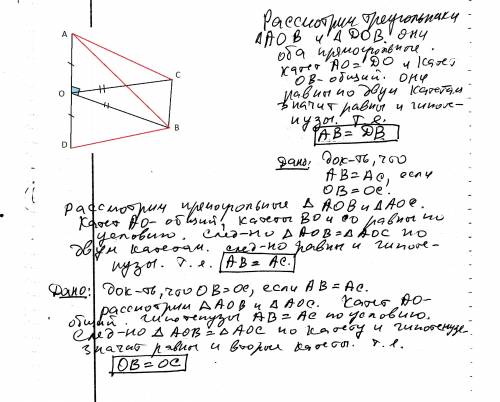 A
C
O
B
D
Рассмотрим треугольники
ΔAOB и ΔDOB. они
оба прямоугольные.
катет AO=DO и катет
OB-общий. они
равны по двум катетам
значит равны и гипоте-
нузы. т.е.
AB=DB
Дано: док-ть, что
AB=AC, если
OB=OC.
рассмотрим прямоугольные ΔAOB и ΔAOC.
Катет AO-общий, катеты BO и CO равны по
условию. след-но ΔAOB=ΔAOC по
двум катетам. след-но равны и гипоте-
нузы. т.е. AB=AC.
Дано: док-ть, что OB=OC, если AB=AC.
рассмотрим ΔAOB и ΔAOC. Катет AO-
общий. гипотенузы AB=AC по условию.
След-но ΔAOB=ΔAOC по катету и гипотенузе.
значит равны и вторые катеты. т.е.
OB=OC